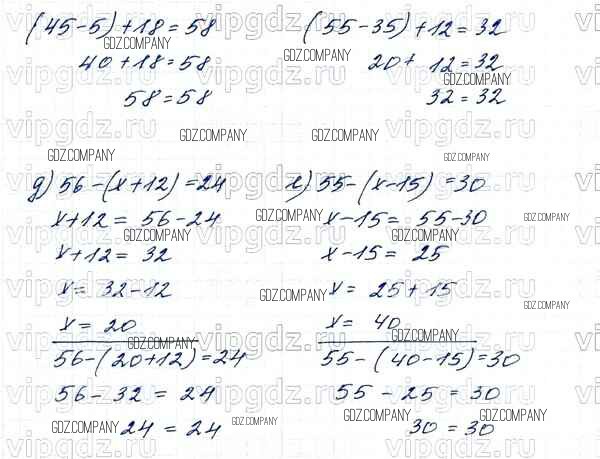 (45-5)+18=58
40+18=58
58=58
(55-35)+12=32
20+12=32
32=32
д) 56-(x+12)=24
x+12=56-24
x+12=32
x=32-12
x=20
56-(20+12)=24
56-32=24
24=24
е) 55-(x-15)=30
x-15=55-30
x-15=25
x=25+15
x=40
55-(40-15)=30
55-25=30
30=30
vipgdz.ru
GDZ.COMPANY